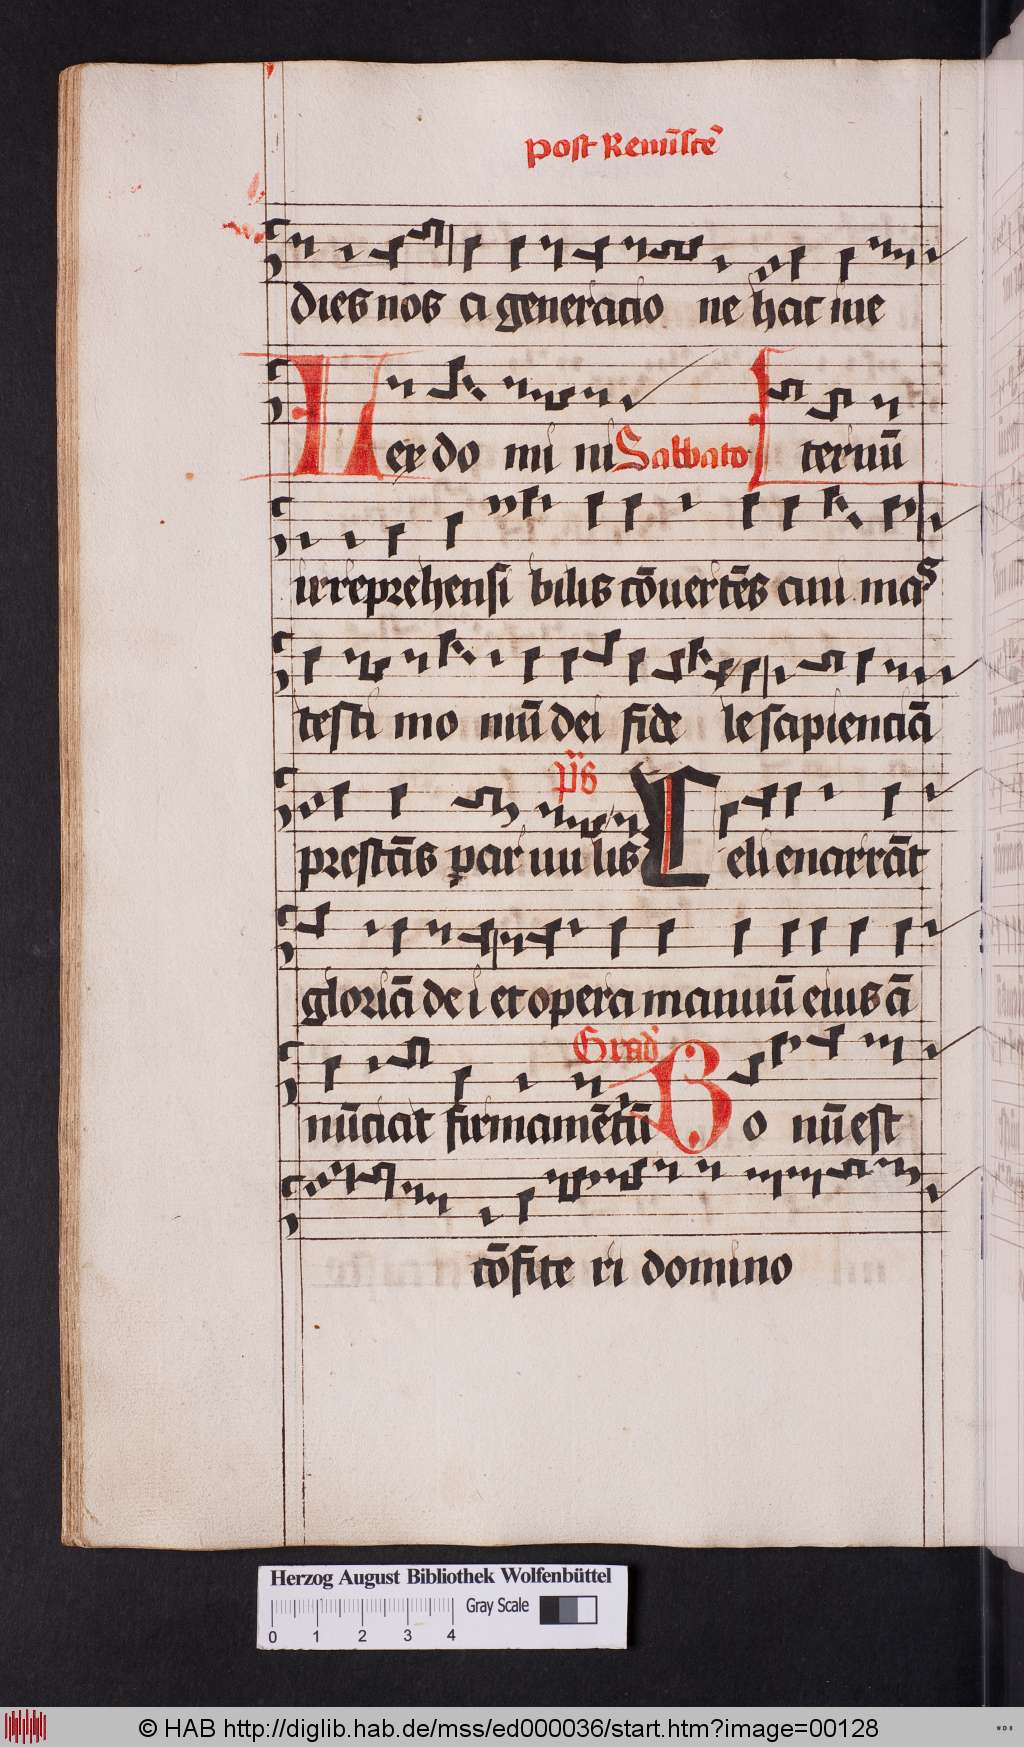 post Remīsce᷒
dies nos a generatio ne hac in e
Lex do mi ni Sabbato I terum̄
irreprehensi bilis cōuertēs ani mas
testi mo niū dei fide le sapienciā
prestās par uu lis ps Celi enarrāt
gloriā de i et opera manuū eius ā
nūciat firmamētū Grad' Bo nū est
cōfite ri domino
Herzog August Bibliothek Wolfenbüttel
Gray Scale
0 1 2 3 4
© HAB http://diglib.hab.de/mss/ed000036/start.htm?image=00128